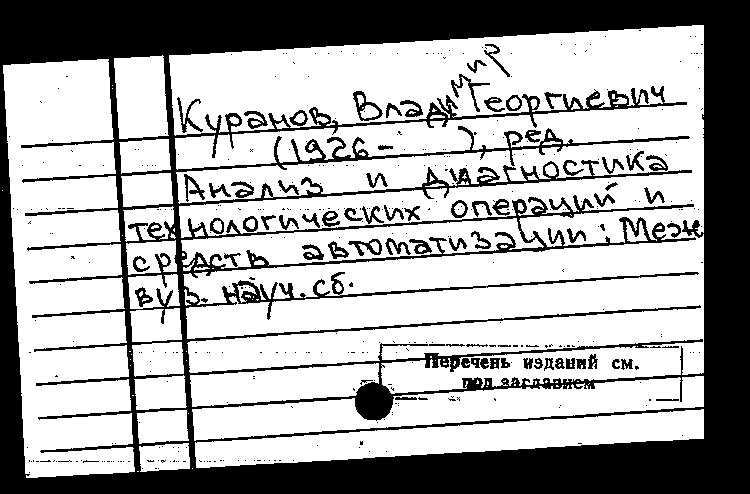 Куранов, Владимир Георгиевич
(1926- ), ред.
Анализ и диагностика
технологических операций и
средств автоматизации: Меж
вуз. науч. сб.
Перечень изданий см.
под заглавием